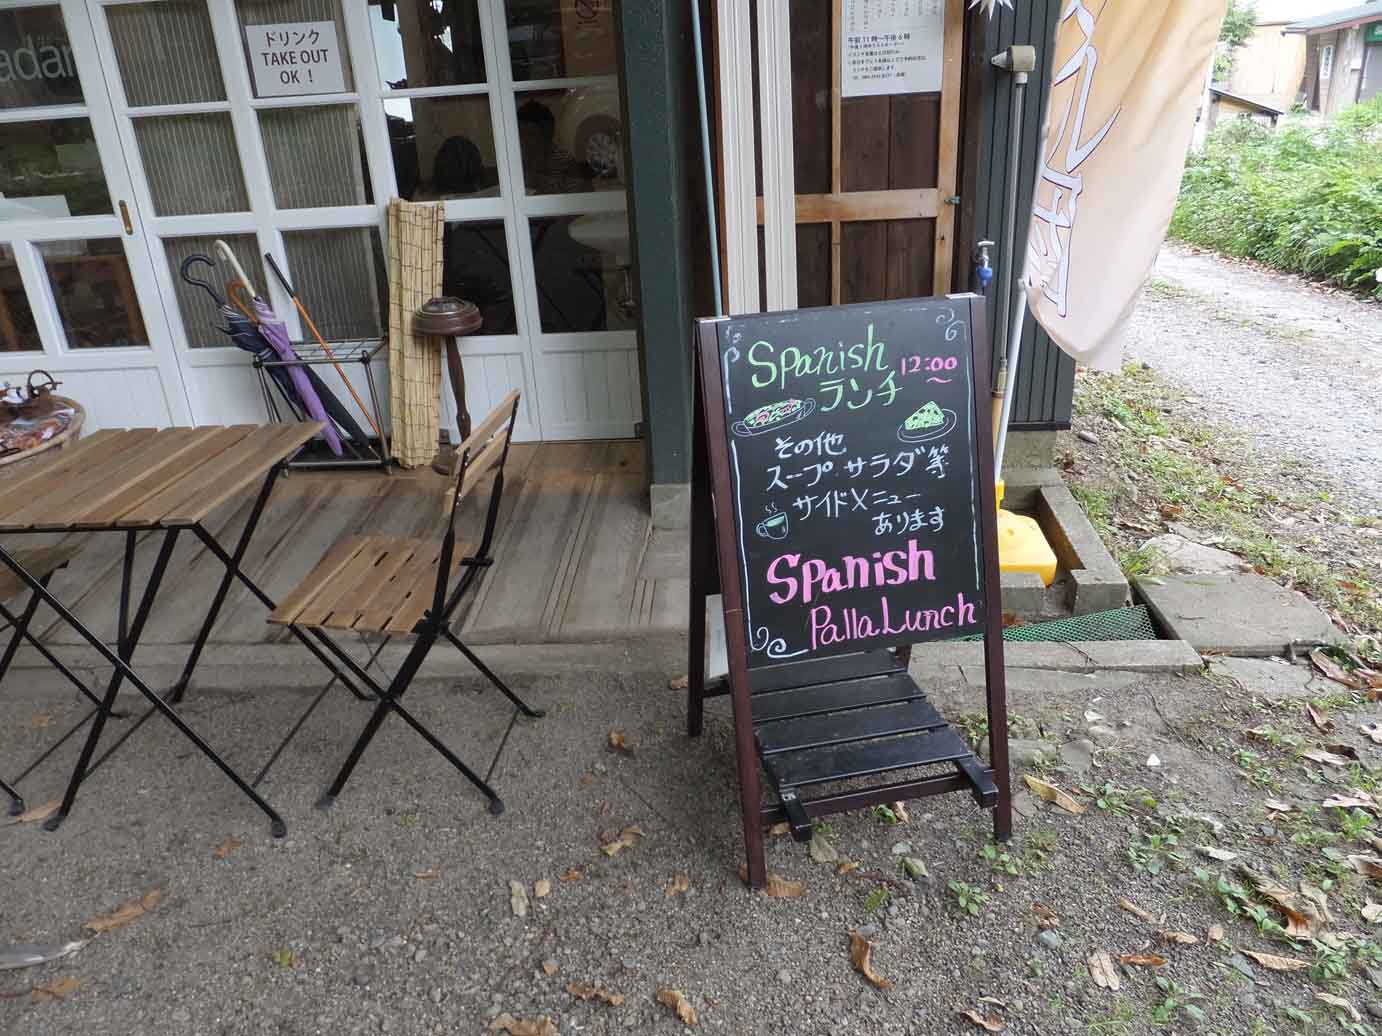 adan
ドリンク
TAKE OUT
OK！
午前11時〜午後6時
Spanish
ランチ
12:00
〜
その他
スープ・サラダ等
サイドメニュー
あります
Spanish
Palla Lunch